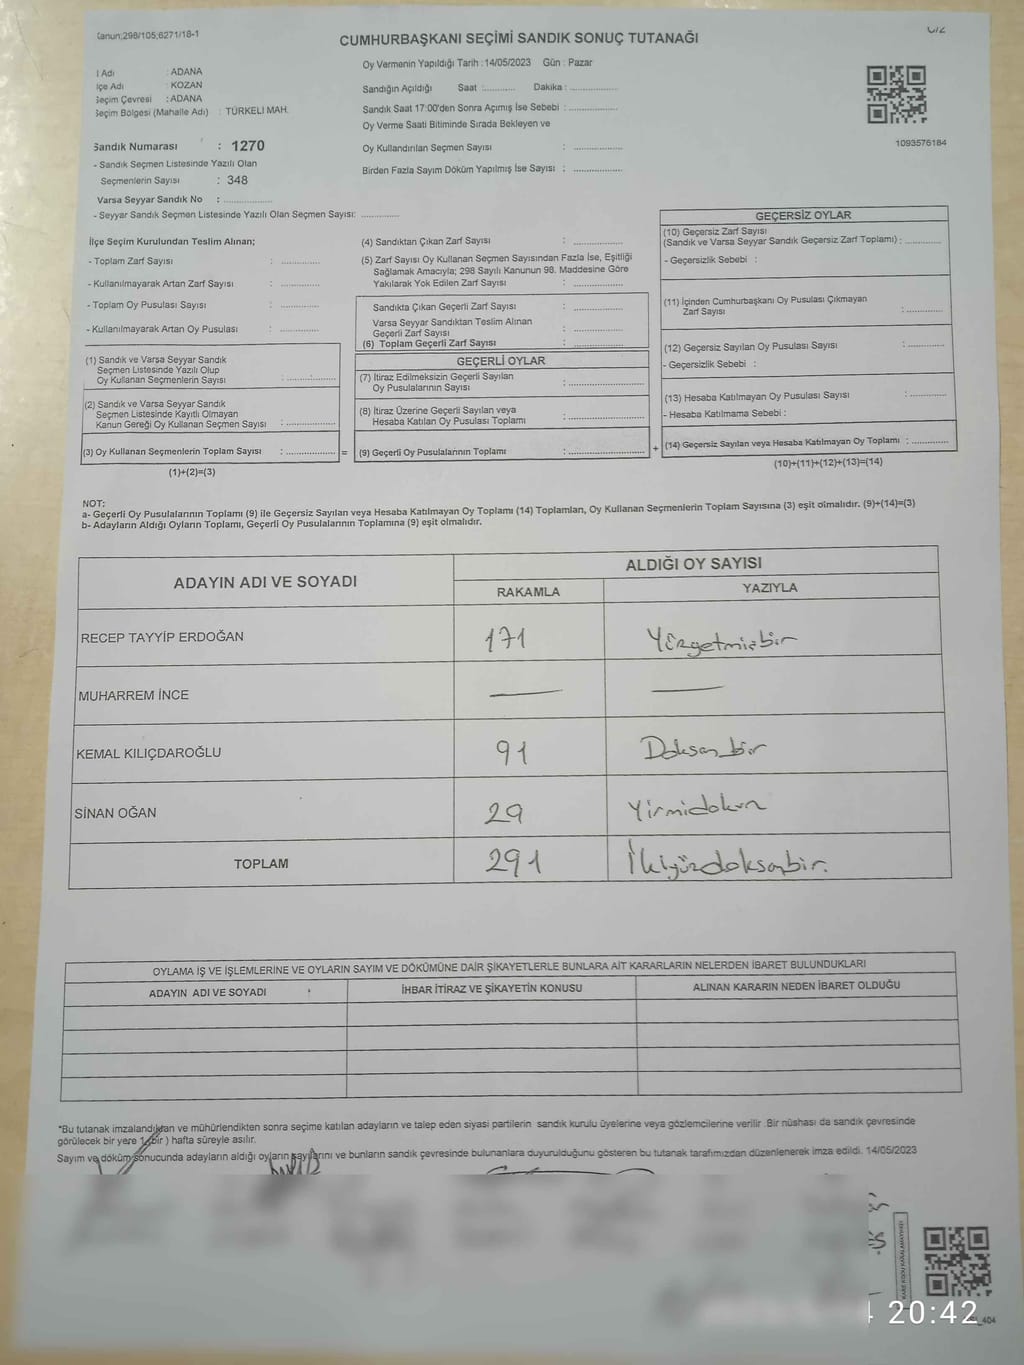 Kanun;298/105;6271/18-1
CUMHURBAŞKANI SEÇİMİ SANDIK SONUÇ TUTANAĞI
Oy Vermenin Yapıldığı Tarih : 14/05/2023 Gün : Pazar
İl Adı : ADANA
İlçe Adı : KOZAN
Seçim Çevresi : ADANA
Seçim Bölgesi (Mahalle Adı) : TÜRKELİ MAH.
Sandık Numarası : 1270
- Sandık Seçmen Listesinde Yazılı Olan
Seçmenlerin Sayısı : 348
Varsa Seyyar Sandık No : ..............
- Seyyar Sandık Seçmen Listesinde Yazılı Olan Seçmen Sayısı: ............
Sandığın Açıldığı Saat :............ Dakika : ................
Sandık Saat 17:00'den Sonra Açımış İse Sebebi : ................
Oy Verme Saati Bitiminde Sırada Bekleyen ve
Oy Kullandırılan Seçmen Sayısı : ................
Birden Fazla Sayım Döküm Yapılmış İse Sayısı : ................
1093576184
İlçe Seçim Kurulundan Teslim Alınan;
- Toplam Zarf Sayısı : ............
- Kullanılmayarak Artan Zarf Sayısı : ............
- Toplam Oy Pusulası Sayısı : ............
- Kullanılmayarak Artan Oy Pusulası : ............
(1) Sandık ve Varsa Seyyar Sandık
Seçmen Listesinde Yazılı Olup
Oy Kullanan Seçmenlerin Sayısı : ................
(2) Sandık ve Varsa Seyyar Sandık
Seçmen Listesinde Kayıtlı Olmayan
Kanun Gereği Oy Kullanan Seçmen Sayısı : ................
(3) Oy Kullanan Seçmenlerin Toplam Sayısı : ................ =
(1)+(2)=(3)
(4) Sandıktan Çıkan Zarf Sayısı : ................
(5) Zarf Sayısı Oy Kullanan Seçmen Sayısından Fazla İse, Eşitliği
Sağlamak Amacıyla; 298 Sayılı Kanunun 98. Maddesine Göre
Yakılarak Yok Edilen Zarf Sayısı : ................
Sandıkta Çıkan Geçerli Zarf Sayısı : ................
Varsa Seyyar Sandıktan Teslim Alınan
Geçerli Zarf Sayısı : ................
(6) Toplam Geçerli Zarf Sayısı : ................
GEÇERLİ OYLAR
(7) İtiraz Edilmeksizin Geçerli Sayılan
Oy Pusulalarının Sayısı : ................
(8) İtiraz Üzerine Geçerli Sayılan veya
Hesaba Katılan Oy Pusulası Toplamı : ................
(9) Geçerli Oy Pusulalarının Toplamı : ................ +
GEÇERSİZ OYLAR
(10) Geçersiz Zarf Sayısı
(Sandık ve Varsa Seyyar Sandık Geçersiz Zarf Toplamı) : ............
- Geçersizlik Sebebi :
(11) İçinden Cumhurbaşkanı Oy Pusulası Çıkmayan
Zarf Sayısı : ............
(12) Geçersiz Sayılan Oy Pusulası Sayısı : ............
- Geçersizlik Sebebi :
(13) Hesaba Katılmayan Oy Pusulası Sayısı : ............
- Hesaba Katılmama Sebebi :
(14) Geçersiz Sayılan veya Hesaba Katılmayan Oy Toplamı : ............
(10)+(11)+(12)+(13)=(14)
NOT:
a- Geçerli Oy Pusulalarının Toplamı (9) ile Geçersiz Sayılan veya Hesaba Katılmayan Oy Toplamı (14) Toplamları, Oy Kullanan Seçmenlerin Toplam Sayısına (3) eşit olmalıdır. (9)+(14)=(3)
b- Adayların Aldığı Oyların Toplamı, Geçerli Oy Pusulalarının Toplamına (9) eşit olmalıdır.
ADAYIN ADI VE SOYADI
ALDIĞI OY SAYISI
RAKAMLA YAZIYLA
RECEP TAYYİP ERDOĞAN 171 Yüzyetmişbir
MUHARREM İNCE — —
KEMAL KILIÇDAROĞLU 91 Doksan bir
SİNAN OĞAN 29 Yirmidokuz
TOPLAM 291 İkiyüzdoksanbir.
OYLAMA İŞ VE İŞLEMLERİNE VE OYLARIN SAYIM VE DÖKÜMÜNE DAİR ŞİKAYETLERLE BUNLARA AİT KARARLARIN NELERDEN İBARET BULUNDUKLARI
ADAYIN ADI VE SOYADI İHBAR İTİRAZ VE ŞİKAYETİN KONUSU ALINAN KARARIN NEDEN İBARET OLDUĞU
*Bu tutanak imzalandıktan ve mühürlendikten sonra seçime katılan adayların ve talep eden siyasi partilerin sandık kurulu üyelerine veya gözlemcilerine verilir .Bir nüshası da sandık çevresinde
görülecek bir yere 1 (bir ) hafta süreyle asılır.
Sayım ve döküm sonucunda adayların aldığı oyların sayılarını ve bunların sandık çevresinde bulunanlara duyurulduğunu gösteren bu tutanak tarafımızdan düzenlenerek imza edildi. 14/05/2023
KARE KODU KARALAMAYINIZ!
20:42